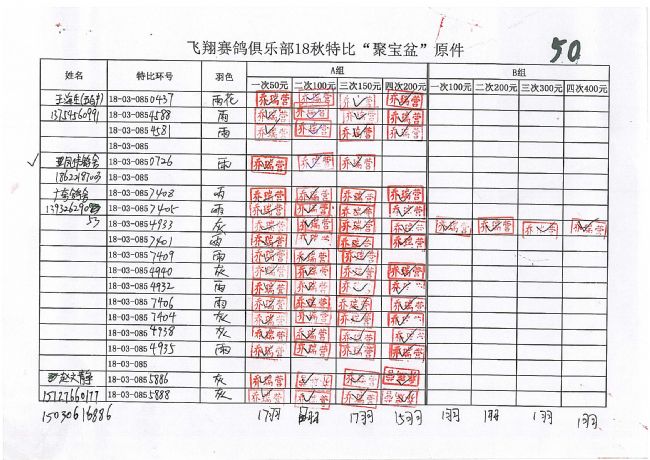 飞翔赛鸽俱乐部18秋特比“聚宝盆”原件 50
姓名 特比环号 羽色 A组 B组
一次50元 二次100元 三次150元 四次200元 一次100元 二次200元 三次300元 四次400元
18-03-0850437 雨花 乔瑞营 乔瑞营 乔瑞营 乔瑞营
18-03-0854588 雨 乔瑞营 乔瑞营 乔瑞营 乔瑞营
18-03-0854581 雨 乔瑞营 乔瑞营 乔瑞营 乔瑞营
18-03-085
18-03-0850726 雨 乔瑞营 乔瑞营 乔瑞营
18-03-085
18-03-0857408 雨 乔瑞营 乔瑞营 乔瑞营 乔瑞营
18-03-0857405 雨 乔瑞营 乔瑞营 乔瑞营 乔瑞营
18-03-0854933 灰 乔瑞营 乔瑞营 乔瑞营 乔瑞营 乔瑞营 乔瑞营 乔瑞营 乔瑞营
18-03-0857401 雨 乔瑞营 乔瑞营 乔瑞营 乔瑞营
18-03-0857409 雨 乔瑞营 乔瑞营 乔瑞营
18-03-0854940 灰 乔瑞营 乔瑞营 乔瑞营 乔瑞营
18-03-0854932 雨 乔瑞营 乔瑞营 乔瑞营 乔瑞营
18-03-0857406 雨 乔瑞营 乔瑞营 乔瑞营 乔瑞营
18-03-0857404 灰 乔瑞营 乔瑞营 乔瑞营 乔瑞营
18-03-0854938 灰 乔瑞营 乔瑞营 乔瑞营 乔瑞营
18-03-0854935 雨 乔瑞营 乔瑞营 乔瑞营 乔瑞营
18-03-085
18-03-0855886 灰 乔瑞营 乔瑞营 乔瑞营
15127660177 18-03-0855888 灰 乔瑞营 乔瑞营 乔瑞营
15030616886 17羽 17羽 15羽 1羽 1羽 1羽 1羽